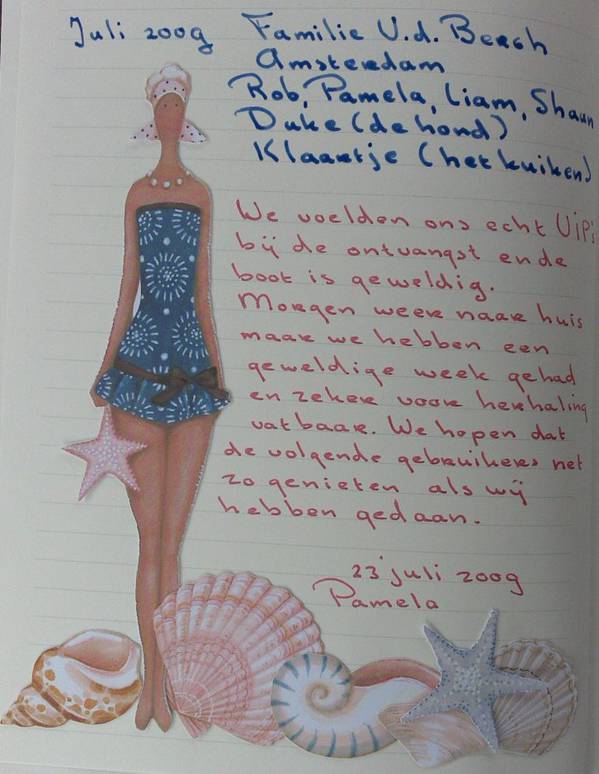 Juli 2009 Familie V.d. Bergh
Amsterdam
Rob, Pamela, Liam, Shaun
Duke (de hond)
Klaartje (het kuiken)
We voelden ons echt ViP's
bij de ontvangst en de
boot is geweldig.
Morgen weer naar huis
maar we hebben een
geweldige week gehad
en zeker voor herhaling
vatbaar. We hopen dat
de volgende gebruikers net
zo genieten als wij
hebben gedaan.
23 juli 2009
Pamela